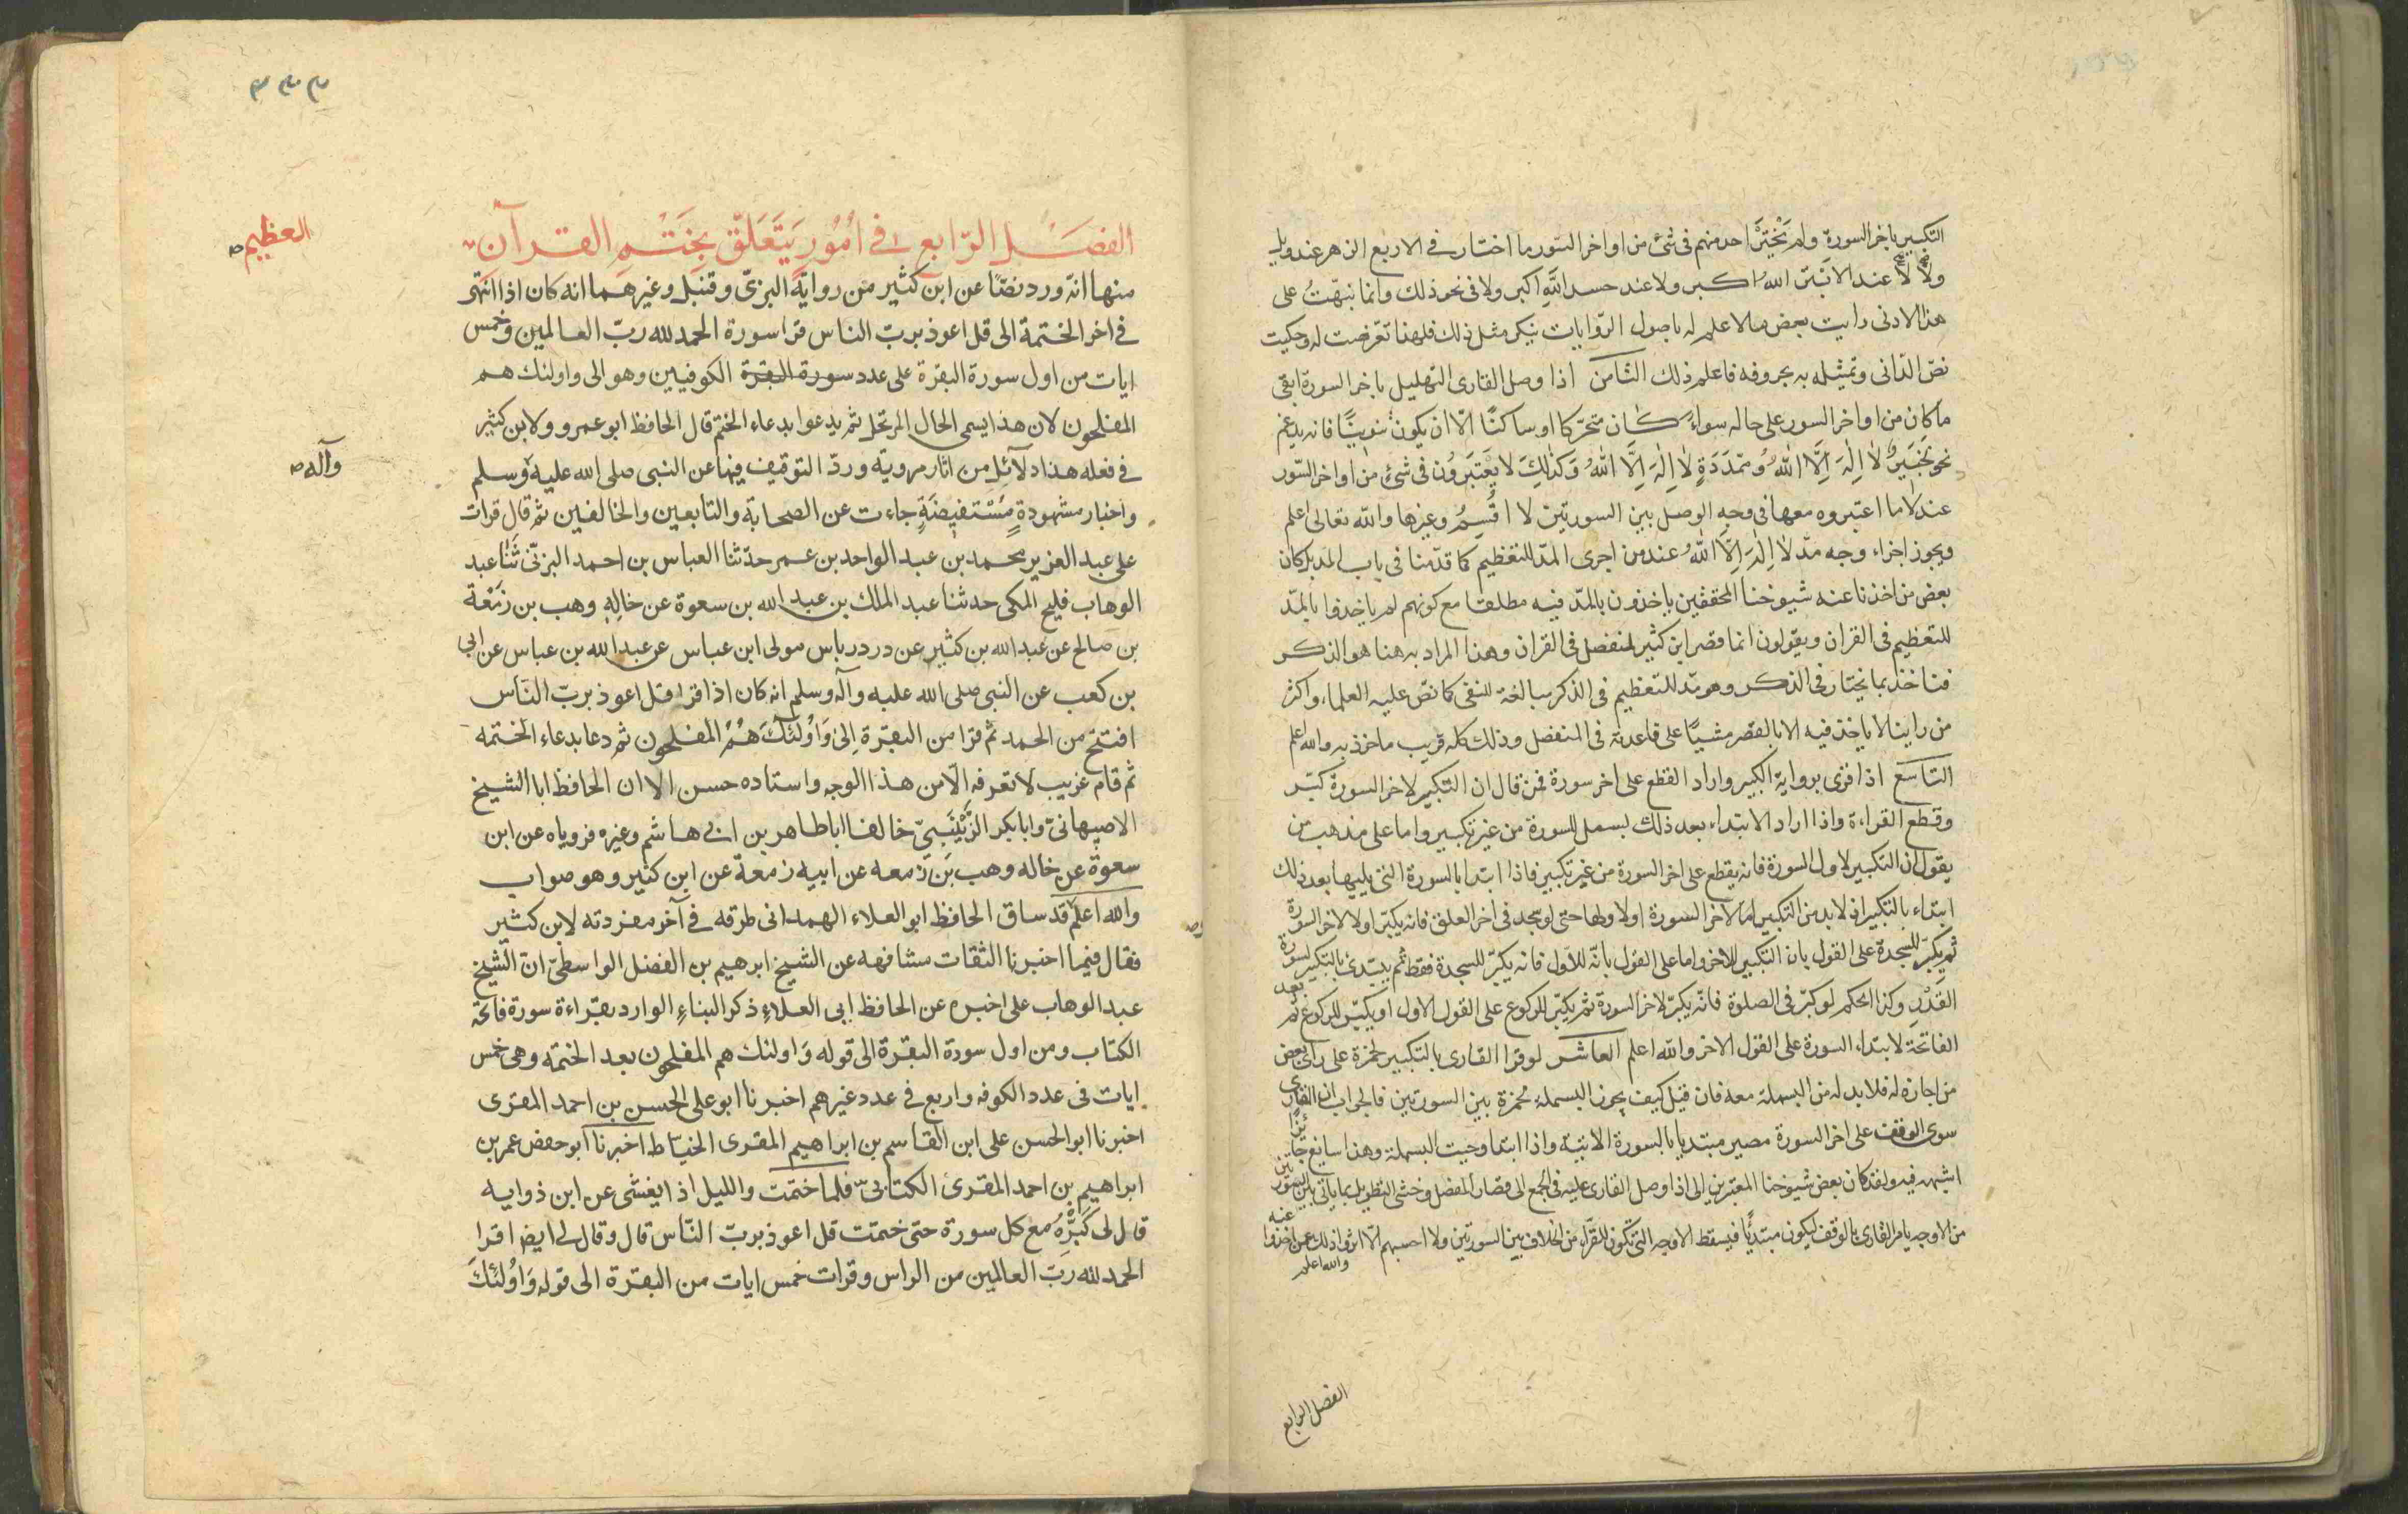 التكبير باخر السورة ولم يَخْتَرْ احد منهم في شئ من اواخر السّور ما اختار في الاربع الزهر عند ويل
ولا لا عند الابتر اللهُ اكبر ولا عند حسد اللهِ اكبر ولا في نحو ذلك وانما نبهّتُ على
هذا لاننى رايت بعض من لا علم له باصول الروايات ينكر مثل ذلك فلهذا تعرّضت له وحكيت
نصّ الدّانى وتمثيله به بحروفه فاعلم ذلك الثامن اذا وصل القارى التهليل باخر السورة ابقى
ما كان من اواخر السور على حاله سواءٌ كان متحرّكا او ساكنًا الّا ان يكون تنوينًا فانه يدغم
نحو لَخَبِيرٌ لا اِلٰهَ اِلَّا اللهُ ومُمَدَدَةٍ لا اِلٰهَ اِلَّا اللهُ وَكذلِكَ لا يعتبرون في شئ من اواخر السّور
عند لا ما اعتبروه معها في وجه الوصل بين السورتين لا اقسِمُ وغيرها والله تعالى اعلم
ويجوز اجراء وجه مدّ لا اِلٰهَ اِلَّا اللهُ عند من اجرى المدّ للتعظيم كما قدّمنا في باب المد بل كان
بعض من اخذنا عنه شيوخنا المحققين ياخذون بالمدّ فيه مطلقا مع كونهم لم ياخذوا بالمدّ
للتعظيم في القران ويقولون انما قصر ابن كثير المنفصل في القران وهذا المراد به هنا هو الذكر
فناخذ بما يختار في الذكر وهو مدّ للتعظيم في الذكر مبالغة للنفى كما نصّ عليه العلماء واكثر
من راينا لا ياخذ فيه الا بالقصر مشيًا على قاعدته في المنفصل وذلك كله قريب ماخوذ به والله اعلم
التاسع اذا قرى برواية التكبير واراد القطع على اخر سورة فمن قال ان التكبير لاخر السورة كبّر
وقطع القراءة واذا اراد الابتداء بعد ذلك بسمل للسورة من غير تكبير واما على مذهب من
يقول ان التكبير لاول السورة فانه يقطع على اخر السورة من غير تكبير فاذا ابتدا بالسورة التى يليها بعد ذلك
ابتداء بالتكبير اذ لا بد من التكبير امّا لاخر السورة او لاولها حتى لو سجد في اخر العلق فانه يكبّر اولا لاخر السورة
ثم يكبّر للسجدة على القول بان التكبير للاخر واما على القول بانّه للاول فانه يكبّر للسجدة فقط ثم يبتدئ بالتكبير لسورة
القَدْرِ وكذا الحكم لو كبّر في الصلوة فانّه يكبّر لاخر السورة ثم يكبّر للركوع على القول الاول او يكبّر للركوع ثم بعد
الفاتحة لابتداء السورة على القول الاخر والله اعلم العاشر لو قرا القارى بالتكبير لحمزة على راى بعض
من اجازه له فلا بد له من البسملة معه فان قيل كيف يجوز البسملة لحمزة بين السورتين فالجواب ان القارى
سوى الوقف على اخر السورة مصير مبتديا بالسورة الاتية واذا ابتدا وجبت البسملة وهذا سايغ جائزًا
اشبهه فيه ولقد كان بعض شيوخنا المعتبرين الى اذا وصل القارى عليه في الجمع الى قصار المفصل وخشى التطويل بما ياتى بين السور
من الاوجه يامر القارى بالوقف ليكون مبتديًا فيسقط الاوجه التى تكون للقرّاء من الخلاف بين السورتين ولا احسبهم الّا اثروا ذلك عن من اخذوا عنه
والله اعلم
الفصل الرابع
٣٣٣
الفصل الرّابع في امُورٍ يَتَعَلّق بِخَتْمِ القرآن
العظيم صح
منها انّه ورد نصًا عن ابن كثير من رواية البزىّ وقنبل وغيرهما انه كان اذا انتهى
في اخر الختمة الى قل اعوذ برب الناس قرا سورة الحمد لله ربّ العالمين وخمس
ايات من اول سورة البقرة على عدد سورة البقرة الكوفيين وهو الى واولئك هم
المفلحون لان هذا يسمى الحال المرتحل ثم يدعوا بدعاء الختم قال الحافظ ابو عمرو ولابن كثير
في فعله هذا دلآئل من اثار مرويّة وردّ التوقيف فيها عن النبى صلى الله عليه وسلم
وآله صح
واخبار مشهودةٍ مُسْتفيضَةٍ جاءت عن الصحابة والتابعين والخالفين ثم قال قرات
على عبد العزيز محمد بن عبد الواحد بن عمر حدّثنا العباس بن احمد البزىّ ثَنا عبد
الوهاب فليح المكى حدثنا عبد الملك بن عبد الله بن سعوة عن خالِهِ وهب بن زَمْعة
بن صالح عن عبد الله بن كثير عن درباس مولى ابن عباس عن عبد الله بن عباس عن ابي
بن كعب عن النبى صلى الله عليه وآله وسلم انه كان اذا قرا قل اعوذ بربّ النَاس
افتتح من الحمد ثم قرا من البقرة اِلىٰ وَاوُلئكَ هُمُ المفلحون ثم دعا بدعاء الختمه
ثم قام غريب لا تعرفه الّا من هذا الوجه واستاده حسن الا ان الحافظ ابا الشيخ
الاصبهانىّ وابا بكر الزَّيْنَبىّ خالفا ابا طاهر بن ابى هاشم وغيره فروياه عن ابن
سعوة عن خاله وهب بَن زَمعه عن ابيه زمعة عن ابن كثير وهو صواب
والله اعلم قد ساق الحافظ ابو العلاء الهمدانى طرقه في آخر مفردته لابن كثير
فقال فيما اخبرنا الثقات مشافهه عن الشيخ ابرهيم بن الفضل الواسطىّ انّ الشيخ
عبد الوهاب على اخبره عن الحافظ ابى العلاءِ ذكر البناءِ الوارد بقراءة سورة فاتحة
الكتاب ومن اول سورة البقرة الى قوله وَاولئك هم المفلحون بعد الختمة وهى خمس
ايات في عدد الكوفه واربع في عدد غيرهم اخبرنا ابو على الحسن بن احمد المقرى
اخبرنا ابو الحسن على ابن القاسم بن ابراهيم المقرى الخياط اخبرنا ابو حفص عمر بن
ابراهيم بن احمد المقرئ الكتابىّ فلما ختمت والليل اذا يغشى عن ابن ذوابه
قال لى كَبِّرْهُ مع كل سورة حتى ختمت قل اعوذ بربّ النّاس قال وقال لى ايضا اقرا
الحمد لله ربّ العالمين من الراس وقرات خمس ايات من البقرة الى قوله وَاوُلئكَ